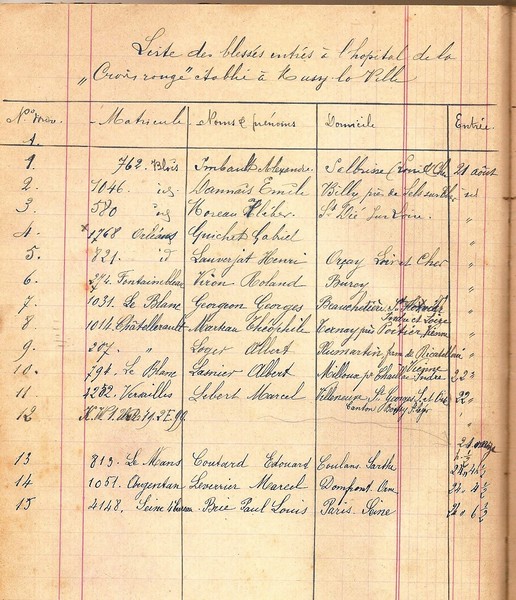 Liste des blessés entrés à l'hopital de la
"Croix rouge" établi à Sussy-la Ville
Nos Mrou. Matricule Noms & prénoms Domicile Entrée
1. 762. Blois Imbault Alexandre. Selbrisse (Loir & Cher 21 août
2. 1046. id Dannais Emile Billy près de Sels sur Cher id
3. 580 id Moreau Kléber. St Dié Sur Loire. "
4. 1768 Orléans Guichet Gabriel "
5. 821. id Lauverjat Henri Orçay Loir et Cher "
6. 274. Fontainebleau Viron Roland Buroy "
7. 1031. Le Blanc Georgeon Georges
Indre et Loire
8. 1014. Châtellerault Marteau Théophile Cornay près Poitier Vienne "
9. 207. " Loger Albert "
Vienne
10. 794. Le Blanc Lasnier Albert Indre 22
11. 4232. Versailles Lebert Marcel Villeneuve St. Georges S. et Oise 22
canton Boissy St Léger
12 "
13 813. Le Mans Coutard Edouard Coulans. Sarthe
14 1051. Argentan Leverrier Marcel Domfront. Orne 24. 4 ½
15 4148. Seine Brie Paul Louis Paris. Seine 24. 6 ½